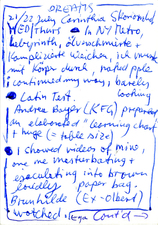 DREAMS
21/22 July Corinthia Skomorokh
WED/Thurs • In NY Metro,
Labyrinth,
Komplizierte Weichen, ich
mit Körper durch, naked pple
I continued my way, barely
looking
• Latin Test.
Andrea Bayer (KFG) prepared
an elaborated "learning chart"
+ huge (= table size)
• I showed videos of mine,
one me masturbating +
esaculating into brown
loidly paper bag.
Brunhilde (Ex-Olbert)
watched. Ega Cont'd →